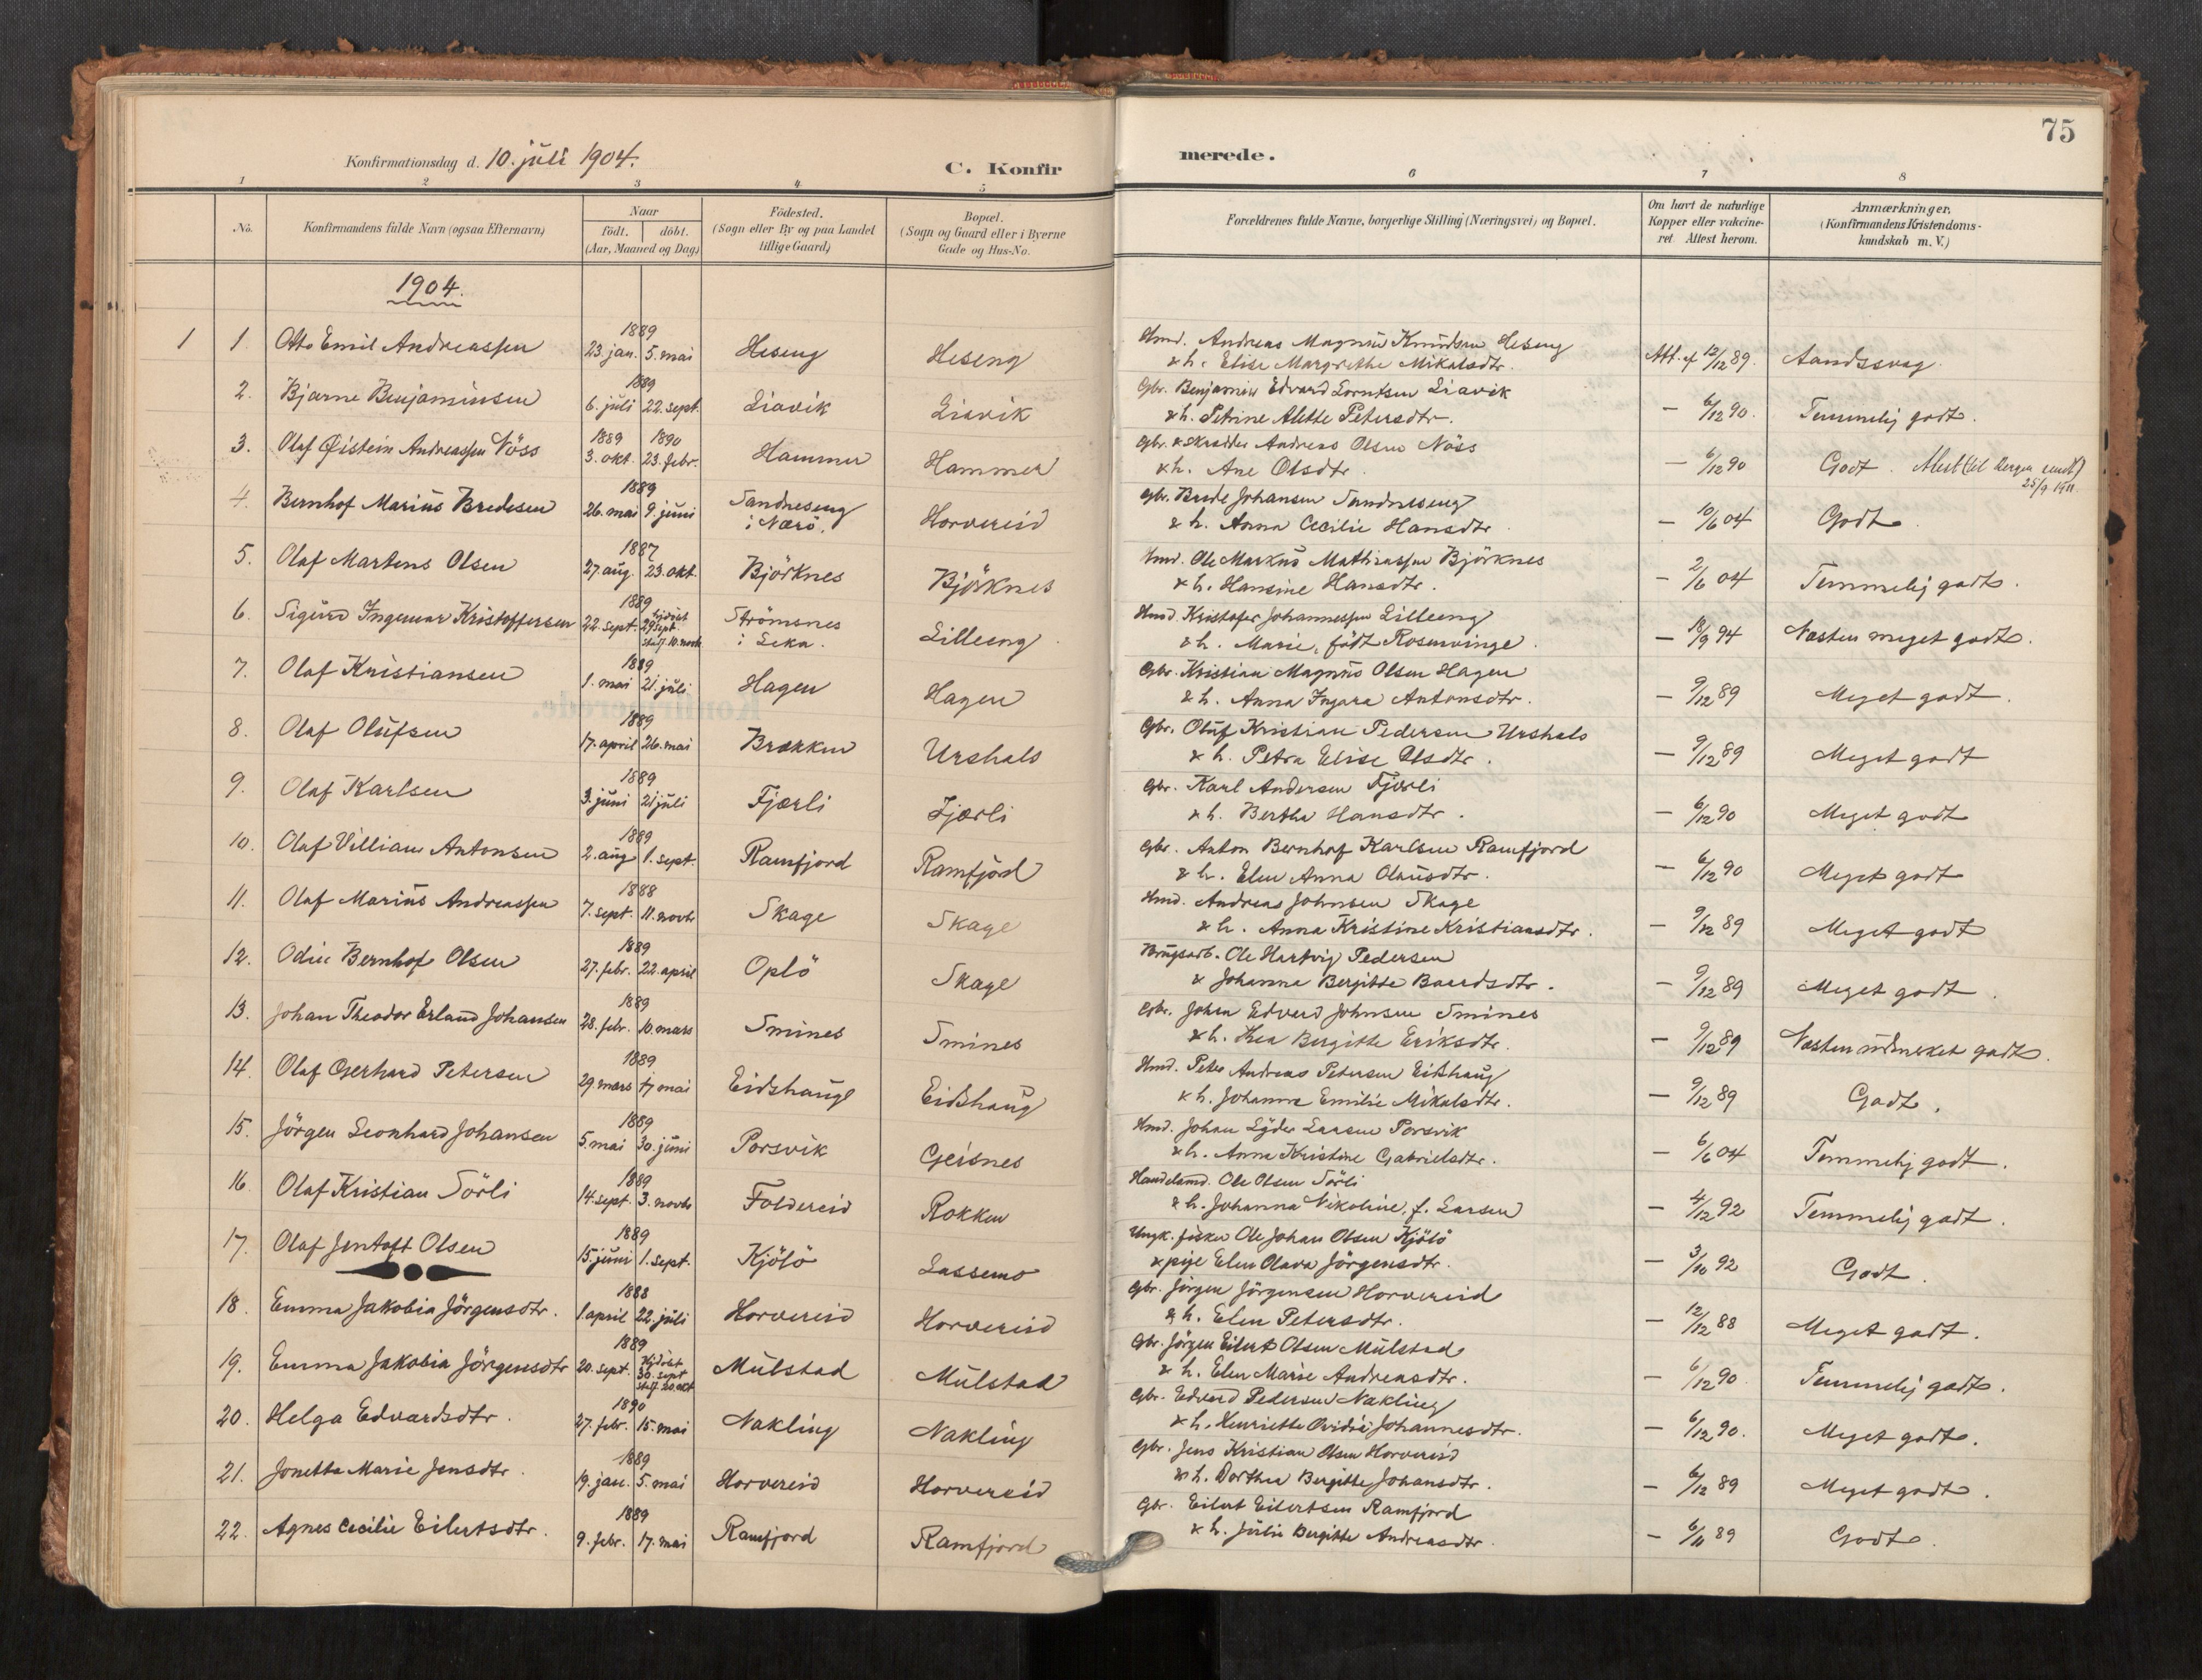 75
Konfirmationsdag d. 10. juli 1904.
C. Konfirmerede.
1 2 3 4 5 6 7 8
No. Konfirmandens fulde Navn (ogsaa Efternavn) Naar födt. döbt. (Aar, Maaned og Dag) Födested. (Sogn eller By og paa Landet tillige Gaard) Bopæl. (Sogn og Gaard eller i Byerne Gade og Hus-No. Forældrenes fulde Navne, borgerlige Stilling (Næringsvei) og Bopæl. Om havt de naturlige Kopper eller vakcineret Attest herom. Anmærkninger, (Konfirmandens Kristendomskundskab m. V.)
1904.
1 1. Otto Emil Andreassen 1889 23. jan. 5. mai Heseng Heseng Hmd. Andreas Magnus Knudsen Heseng
& h. Elise Margrethe Mikalsdtr. Att. af 12/12 89. Aandssvag
2. Bjarne Benjaminsen 1889 6. juli 22. sept. Liavik Liavik Gbr. Benjamin Edvard Lorntsen Liavik
& h. Petrine Alette Petersdtr. — 6/12 90. Temmelig godt.
3. Olaf Øistein Andreassen Nöss 1889 3. okt. 1890 23. febr. Hammer Hammer Gbr. & skrædder Andreas Olsen Nöss
& h. Ane Olsdtr. — 6/12 90 Godt. Attest (til Bergen sendt)
25/9 1911.
4. Bernhof Marius Bredesen 1889 26. mai 9. juni Sandneseng
i Nærö. Horvereid Gbr. Brede Johansen Sandneseng
& h. Anna Cecilie Hansdtr. — 10/6 04 Godt
5. Olaf Martens Olsen 1887 27. aug. 23. okt. Björknes Björknes Hmd. Ole Markus Mathiassen Björknes
& h. Hansine Hansdtr. — 2/6 04 Temmelig godt.
6. Sigurd Ingemar Kristoffersen 1889 22. sept. hjdöbt 29 sept. stadf. 10. novb Strömsnes
i Leka. Lilleeng Hmd. Kristofer Johannessen Lilleeng
& h. Marie, födt Rosenvinge. — 18/9 94 Næsten meget godt.
7. Olaf Kristiansen 1889 1. mai 21. juli Hagen Hagen Gbr. Kristian Magnus Olsen Hagen
& h. Anna Ingara Antonsdtr. — 9/12 89 Meget godt.
8. Olaf Olufsen 1889 17. april 26. mai Brækken Urshals Gbr. Oluf Kristian Pedersen Urshals
& h. Petra Elise Olsdtr. — 9/12 89 Meget godt
9. Olaf Karlsen 1889 3. juni 21 juli Fjærli Fjærli Gbr. Karl Andersen Fjærli
& h. Bertha Hansdtr. — 6/12 90 Meget godt
10. Olaf Villiam Antonsen 1889 2. aug 1. sept. Ramfjord Ramfjord Gbr. Anton Bernhof Karlsen Ramfjord
& h. Elen Anna Olausdtr. — 6/12 90 Meget godt
11. Olaf Marius Andreassen 1888 7. sept. 11. novb Skage Skage Hmd. Andreas Johnsen Skage
& h. Anna Kristine Kristiansdtr. — 9/12 89 Meget godt
12. Odin Bernhof Olsen 1889 27. febr. 22. april Oplö Skage Brugsarb. Ole Hartvig Pedersen
& Johanna Bergitte Baardsdtr. — 9/12 89 Meget godt.
13. Johan Theodor Erland Johansen 1889 28. febr. 10. mars Smines Smines Gbr. Johan Edvard Johnsen Smines
& h. Thea Bergitte Eriksdtr. — 9/12 89 Næsten udmerket godt.
14. Olaf Gerhard Petersen 1889 29. mars 17 mai Eidshaug Eidshaug Hmd. Peter Andreas Petersen Eidshaug
& h. Johanna Emilie Mikalsdtr. — 9/12 89 Godt.
15. Jörgen Leonhard Johansen 1889 5. mai 30. juni Porsvik Geisnes Hmd. Johan Lyder Larsen Porsvik
& h. Anna Kristine Gabrielsdtr. — 6/6 04 Temmelig godt.
16 Olaf Kristian Sörli 1889 14. sept. 3. novb Foldereid Rokken Handelsmd. Ole Olsen Sörli
& h. Johanna Nikoline, f. Larsen — 4/12 92 Temmelig godt.
17. Olaf Jentoft Olsen 1889 15. juni 1. sept. Kjölö Lassemo Ungk. fisker Ole Johan Olsen Kjölö
& pige Elen Olava Jörgensdtr. — 3/10 92 Godt.
18. Emma Jakobia Jörgensdtr. 1888 1. april 22. juli Horvereid Horvereid Gbr. Jörgen Jörgensen Horvereid
& h. Elen Petersdtr. — 12/12 88 Meget godt.
19. Emma Jakobia Jörgensdtr 1889 20. sept. Hjdöbt 30. sept stadf. 20. okt Mulstad Mulstad Gbr. Jörgen Eilert Olsen Mulstad
& h. Elen Marie Andreasdtr. — 6/12 90 Temmelig godt.
20. Helga Edvardsdtr. 1890 27. febr. 15. mai Nakling Nakling Gbr. Edvard Pedersen Nakling
& h. Henriette Ovidie Johannesdtr. — 6/12 90. Meget godt.
21. Jonetta Marie Jensdtr. 1889 19. jan. 5. mai Horvereid Horvereid Gbr. Jens Kristian Olsen Horvereid
& h. Dorthea Bergitte Johansdtr. — 6/12 89 Meget godt.
22. Agnes Cecilie Eilertsdtr. 1889 9. febr. 17. mai Ramfjord Ramfjord Gbr. Eilert Eilertsen Ramfjord
& h. Julie Bergitte Andreasdtr. — 6/11 89 Godt.